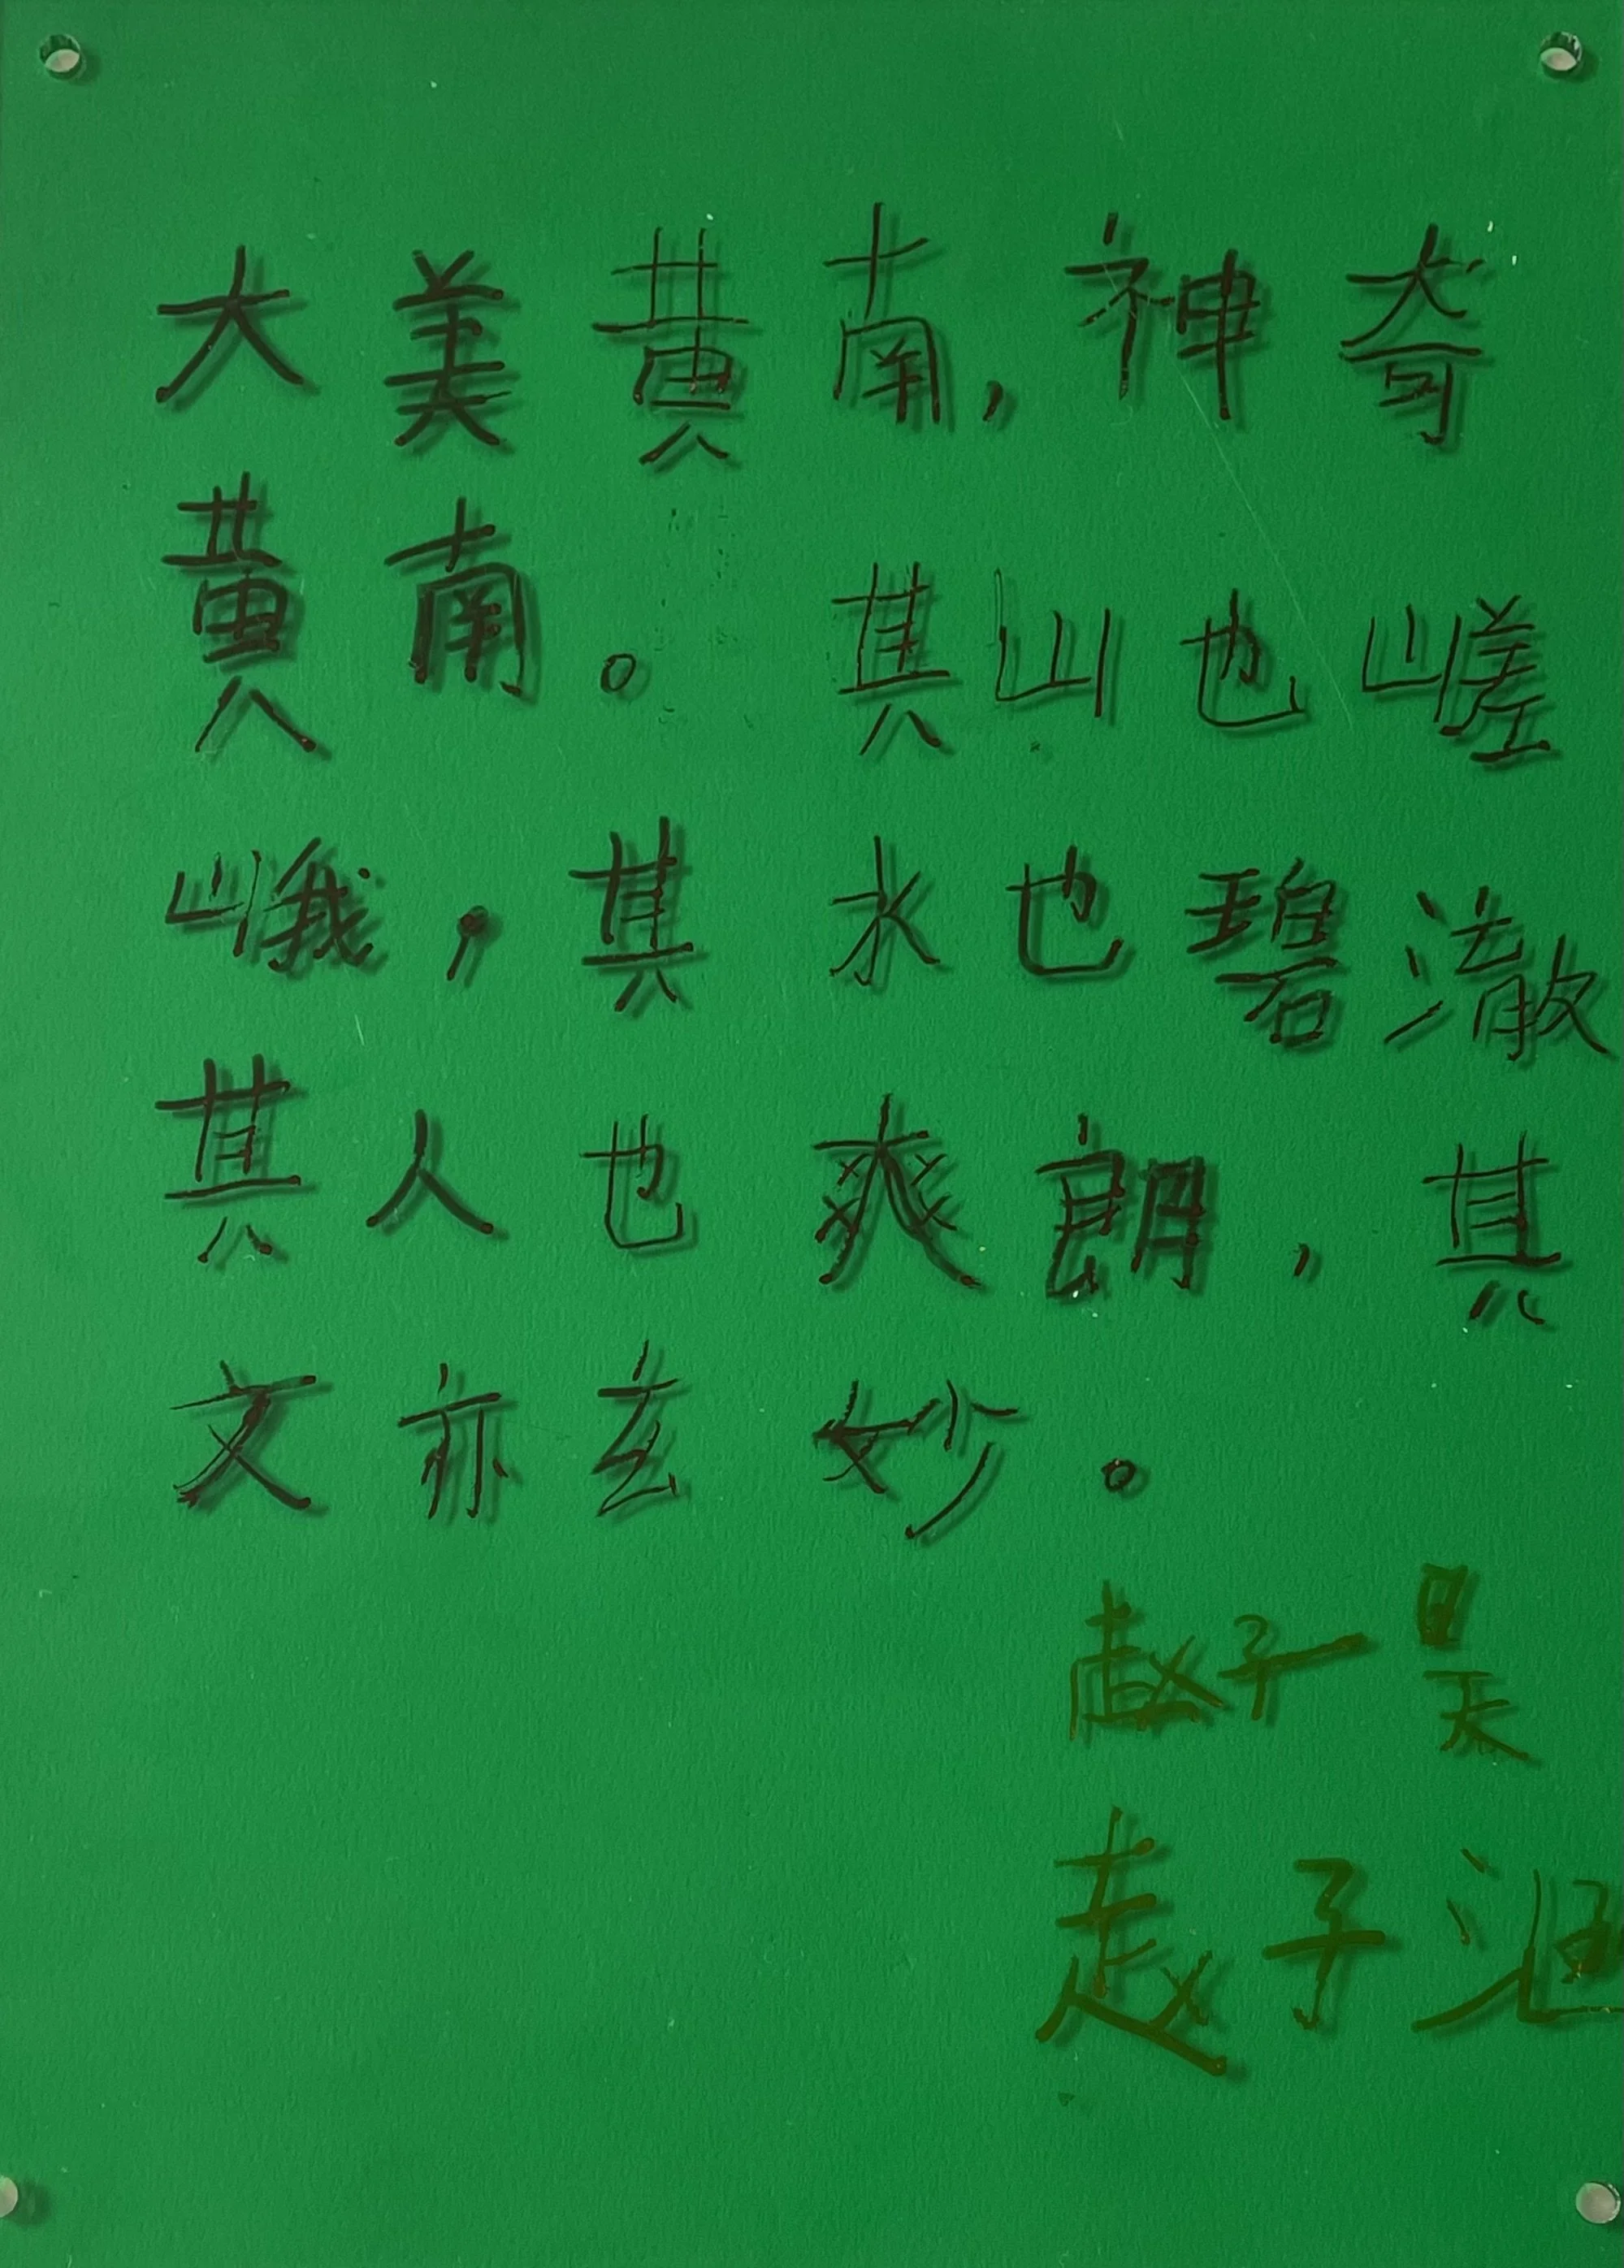 大美黄南，神奇
黄南。其山也嵯
峨，其水也碧澈
其人也爽朗，其
文亦玄妙。
赵子昊
赵子